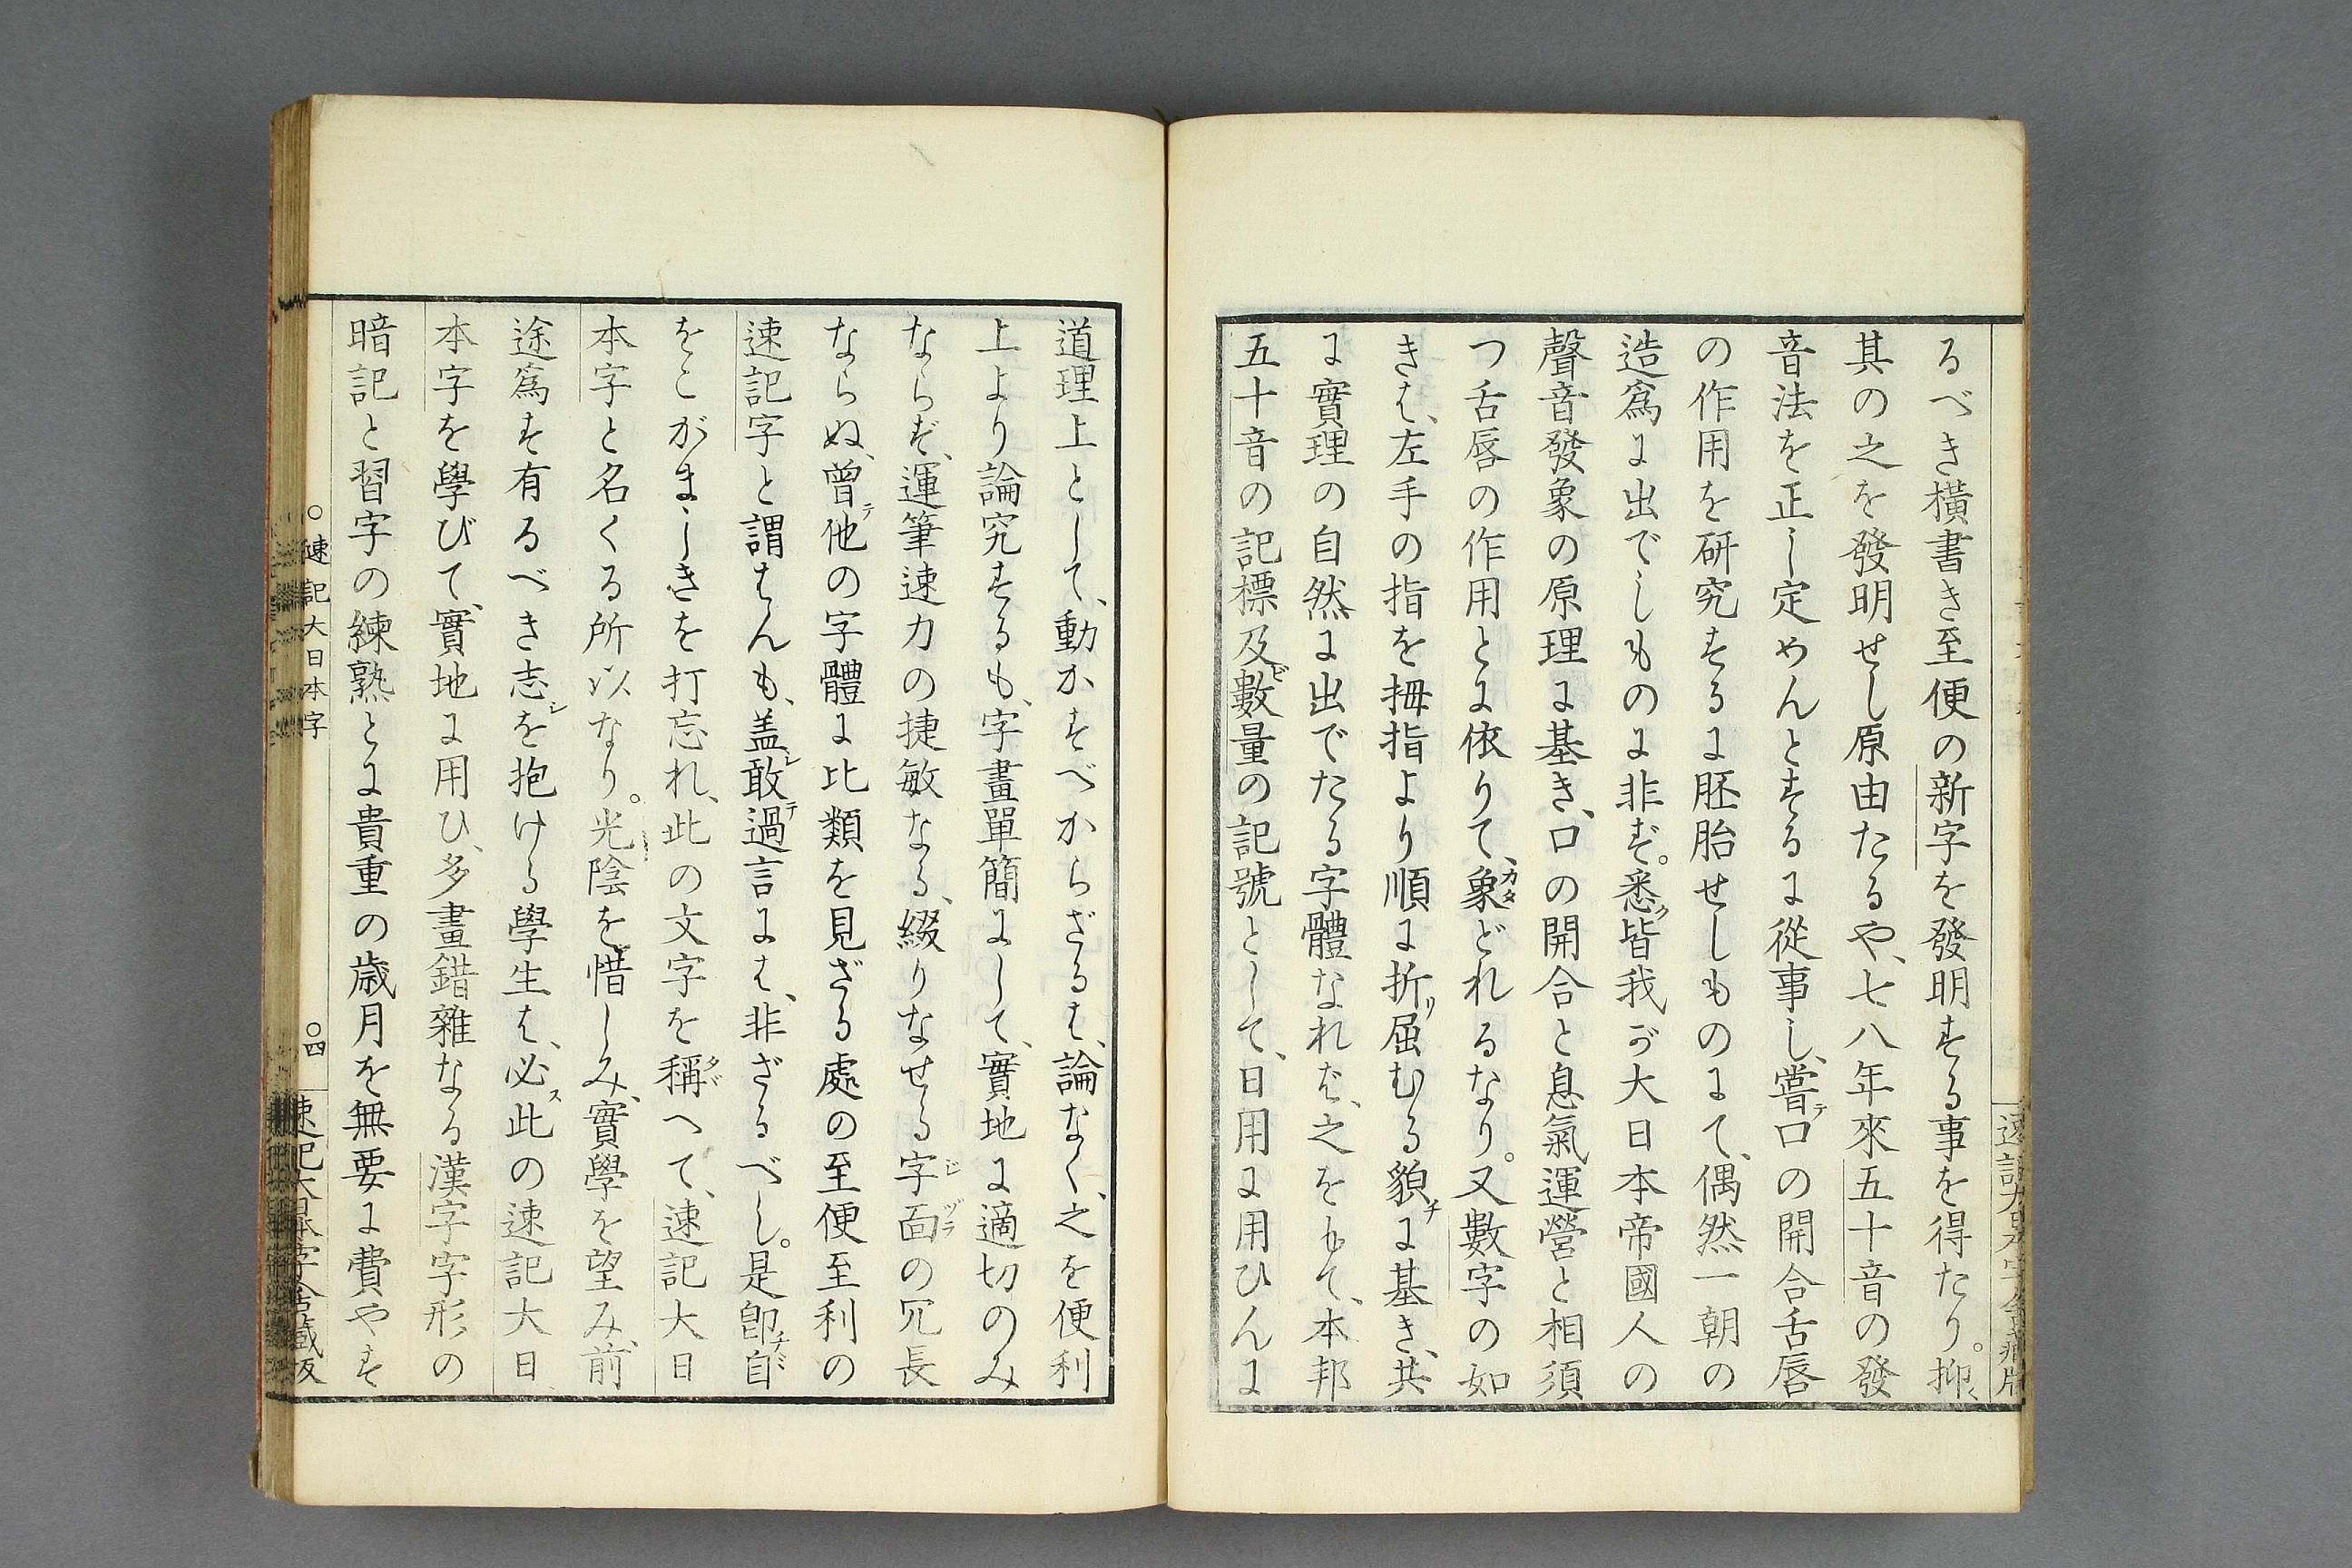 るべき横書き至便の新字を發明する事を得たり。抑〻
其の之を發明せし原由たるや、七八年來五十音の發
音法を正し定めんとするに從事し、嘗テ口の開合舌唇
の作用を研究するに胚胎せしものにて、偶然一朝の
造爲に出でしものに非ず。悉ク皆我が大日本帝國人の
聲音發象の原理に基き、口の開合と息氣運營と相須
つ舌唇の作用とに依りて、象カタどれるなり。又數字の如
きは、左手の指を拇指より順に折リ屈むる貌チに基き、共
に實理の自然に出でたる字體なれば、之をもて、本邦
五十音の記標及ビ數量の記號として、日用に用ひんに
道理上として、動かすべからざるは、論なく、之を便利
上より論究するも、字畫單簡にして、實地に適切のみ
ならず、運筆速力の捷敏なる、綴りなせる字ジ面ヅラの冗長
ならぬ、曾テ他の字體に比類を見ざる處の至便至利の
速記字と謂はんも、盖シ敢テ過言には、非ざるべし。是卽チ自
をこがましきを打忘れ、此の文字を稱タヾへて、速記大日
本字と名くる所以なり。光陰を惜しみ、實學を望み、前
途爲す有るべき志シを抱ける學生は、必ス此の速記大日
本字を學びて、實地に用ひ、多畫錯雜なる漢字字形の
暗記と習字の練熟とに貴重の歳月を無要に費やす
○速記大日本字
○四
速記大日本字會藏版